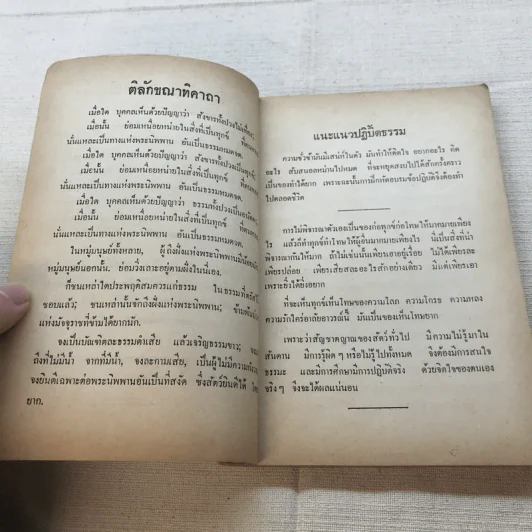 ติลักขณาทิคาถา
เมื่อใด บุคคลเห็นด้วยปัญญาว่า สังขารทั้งปวงไม่เที่ยง;
เมื่อนั้น ย่อมเหนื่อยหน่ายในสิ่งที่เป็นทุกข์ ที่ตนหลง
นั่นแหละเป็นทางแห่งพระนิพพาน อันเป็นธรรมหมดจด.
เมื่อใด บุคคลเห็นด้วยปัญญาว่า สังขารทั้งปวงเป็นทุกข์;
เมื่อนั้น ย่อมเหนื่อยหน่ายในสิ่งที่เป็นทุกข์
นั่นแหละเป็นทางแห่งพระนิพพาน อันเป็นธรรมหมดจด.
เมื่อใด บุคคลเห็นด้วยปัญญาว่า ธรรมทั้งปวงเป็นอนัตตา
เมื่อนั้น ย่อมเหนื่อยหน่ายในสิ่งที่เป็นทุกข์
นั่นแหละเป็นทางแห่งพระนิพพาน อันเป็นธรรมหมดจด.
ในหมู่มนุษย์ทั้งหลาย, ผู้ถึงฝั่งแห่งพระนิพพาน
หมู่มนุษย์นอกนั้น ย่อมวิ่งเลาะอยู่ตามฝั่งในนี่เอง.
ก็ชนเหล่าใดประพฤติสมควรแก่ธรรม ในธรรมที่ตรัส
ชอบแล้ว; ชนเหล่านั้นจักถึงฝั่งแห่งพระนิพพาน; ข้ามพ้น
แห่งมัจจุราชที่ข้ามได้ยากนัก.
จงเป็นบัณฑิตละธรรมดำเสีย แล้วเจริญธรรมขาว;
ถึงที่ไม่มีน้ำ จากที่มีน้ำ, จงละกามเสีย, เป็นผู้ไม่มีความกังวล
จงยินดีเฉพาะต่อพระนิพพานอันเป็นที่สงัด ซึ่งสัตว์ยินดีได้
ยาก.
แนะแนวปฏิบัติธรรม
ความชั่วช้ามันมีเสน่ห์ในตัว มันทำให้คิดใจ อยากอะไร คิด
อะไร สับสนอลหม่านไปหมด ที่จะหยุดสงบไปได้สักครั้งคราว
เป็นของทำได้ยาก เพราะฉะนั้นการฝึกหัดอบรมข้อปฏิบัติจึงต้องทำ
ไปตลอดชีวิต
การไม่พิจารณาตัวเองเป็นของก่อทุกข์ก่อโทษให้มาหมายเพียง
ไร แล้วก็ทำทุกข์ทำโทษให้ผู้อื่นมากมายเพียงไร นี่เป็นสิ่งที่น่า
พิจารณากันให้มาก ถ้าไม่เช่นนั้นเพียรเอาอยู่เรื่อย ไม่ได้เพียรละ
เพียรปล่อย เพียรเสียสละอะไรสักอย่างเดียว มีแต่เพียรเอา
เพราะยิ่งได้ก็ยิ่งอยาก
ที่จะเห็นทุกข์เห็นโทษของความโลภ ความโกรธ ความหลง
ความรักใคร่อาลัยอาวรณ์นี้ มันเป็นของเห็นโทษยาก
เพราะว่าสัญชาตญาณของสัตว์ทั่วไป มีความไม่รู้มาใน
สันดาน มีการรู้ผิดๆ หรือไม่รู้ไปทั้งหมด จึงต้องมีการสนใจ
ธรรมะ และมีการศึกษามีการปฏิบัติจริง ด้วยจิตใจของตนเอง
จริงๆ จึงจะได้ผลแน่นอน